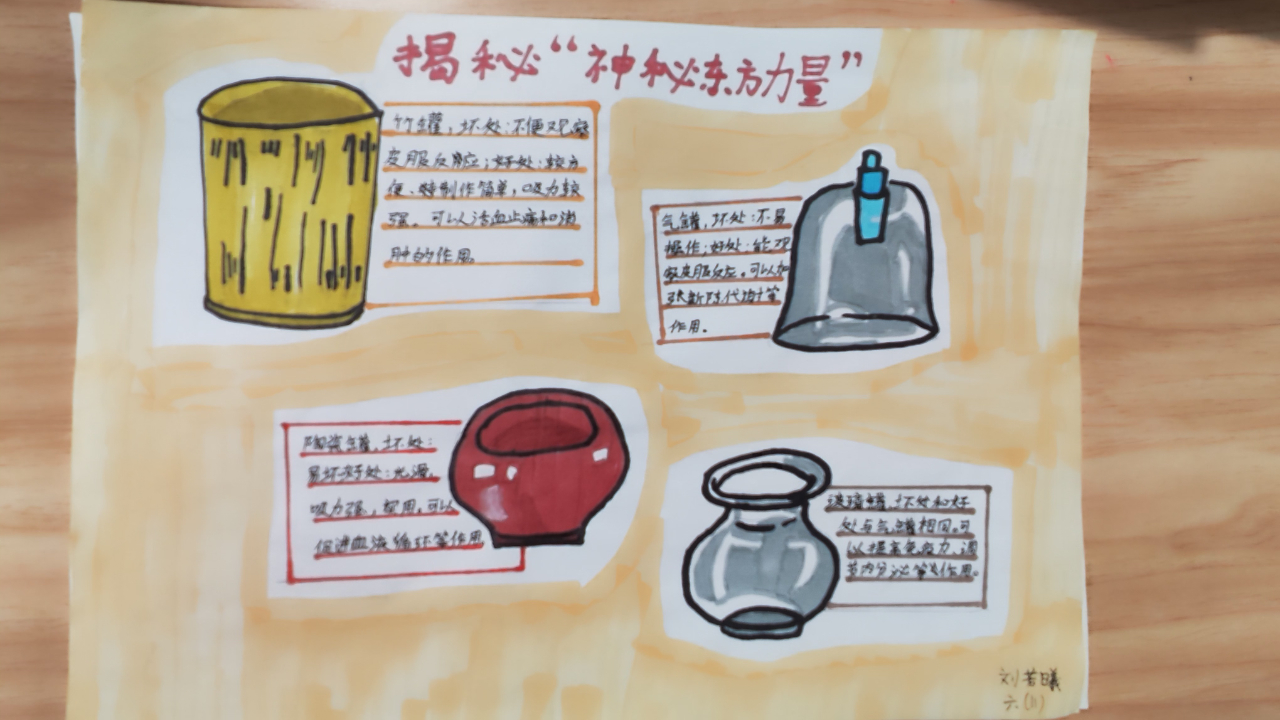 揭秘“神秘东方力量”
竹罐，坏处：不便观察
皮服反应；好处：较方
便、特制作简单，吸力较
强。可以活血止痛和消
肿的作用。
气罐，坏处：不易
操作；好处：能观
察皮服反应。可以加
强新陈代谢等
作用。
陶瓷罐，坏处：
易坏好处：光滑，
吸力强，耐用，可以
促进血液循环等作用
玻璃罐，坏处和好
处与气罐相同。可
以提高免疫力、调
节内分泌等作用。
刘若曦
六（11）